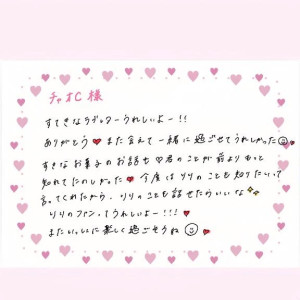 チャオC様
すてきなラヴレターうれしいよー!!
ありがとう♥また会えて一緒に過ごせてうれしかった☺
すきなお菓子のお話も♡君のことが前よりもっと
知れてたのしかった♥今度はりりのことも知りたいって
言ってくれたから、りりのことも話せたらいいな✨
りりのファンってうれしいよー!!!♥
またいっしょに楽しく過ごそうね☺♥